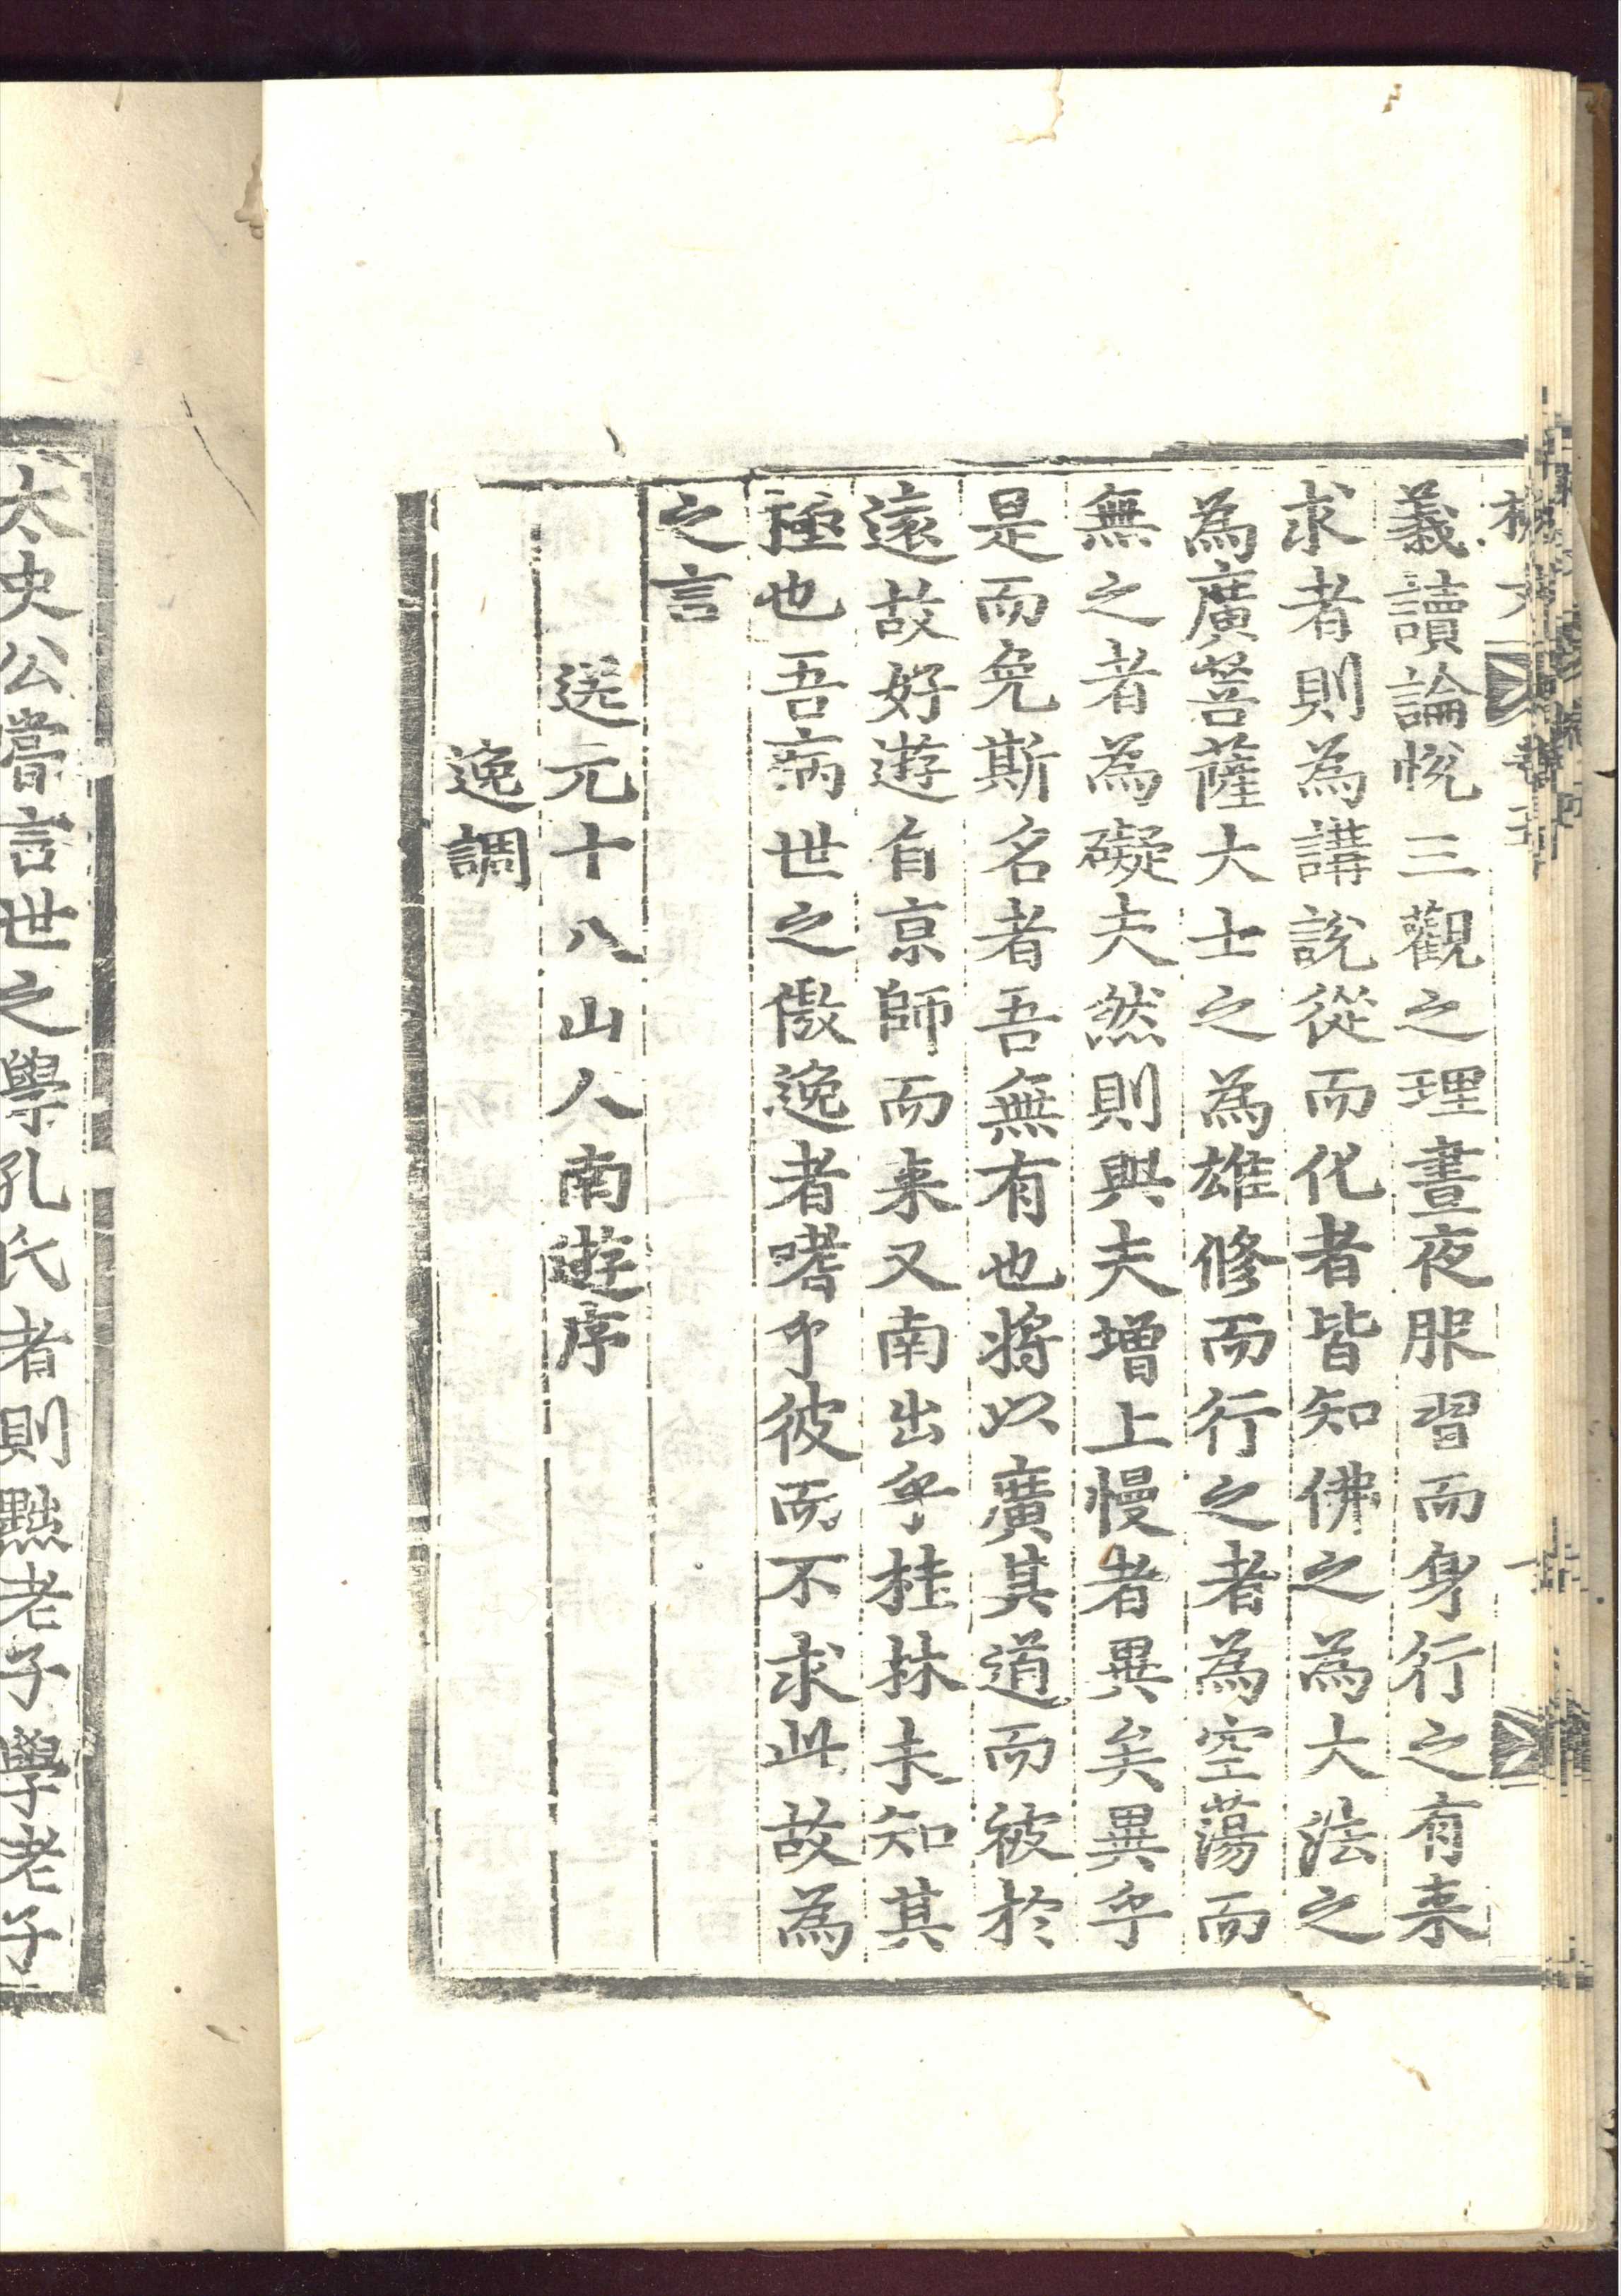 義讀論悅三觀之理晝夜服習而身行之有来
求者則為講說從而化者皆知佛之為大法之
為廣菩薩大士之為雄修而行之者為空蕩而
無之者為礙夫然則與夫增上慢者異矣異乎
是而免斯名者吾無有也将以廣其道而被於
遠故好遊自京師而来又南出乎桂林未知其
極也吾病世之傲逸者嗜乎彼而不求此故為
之言
送元十八山人南遊序
逸調
太史公嘗言世之學孔氏者則黜老子學老子